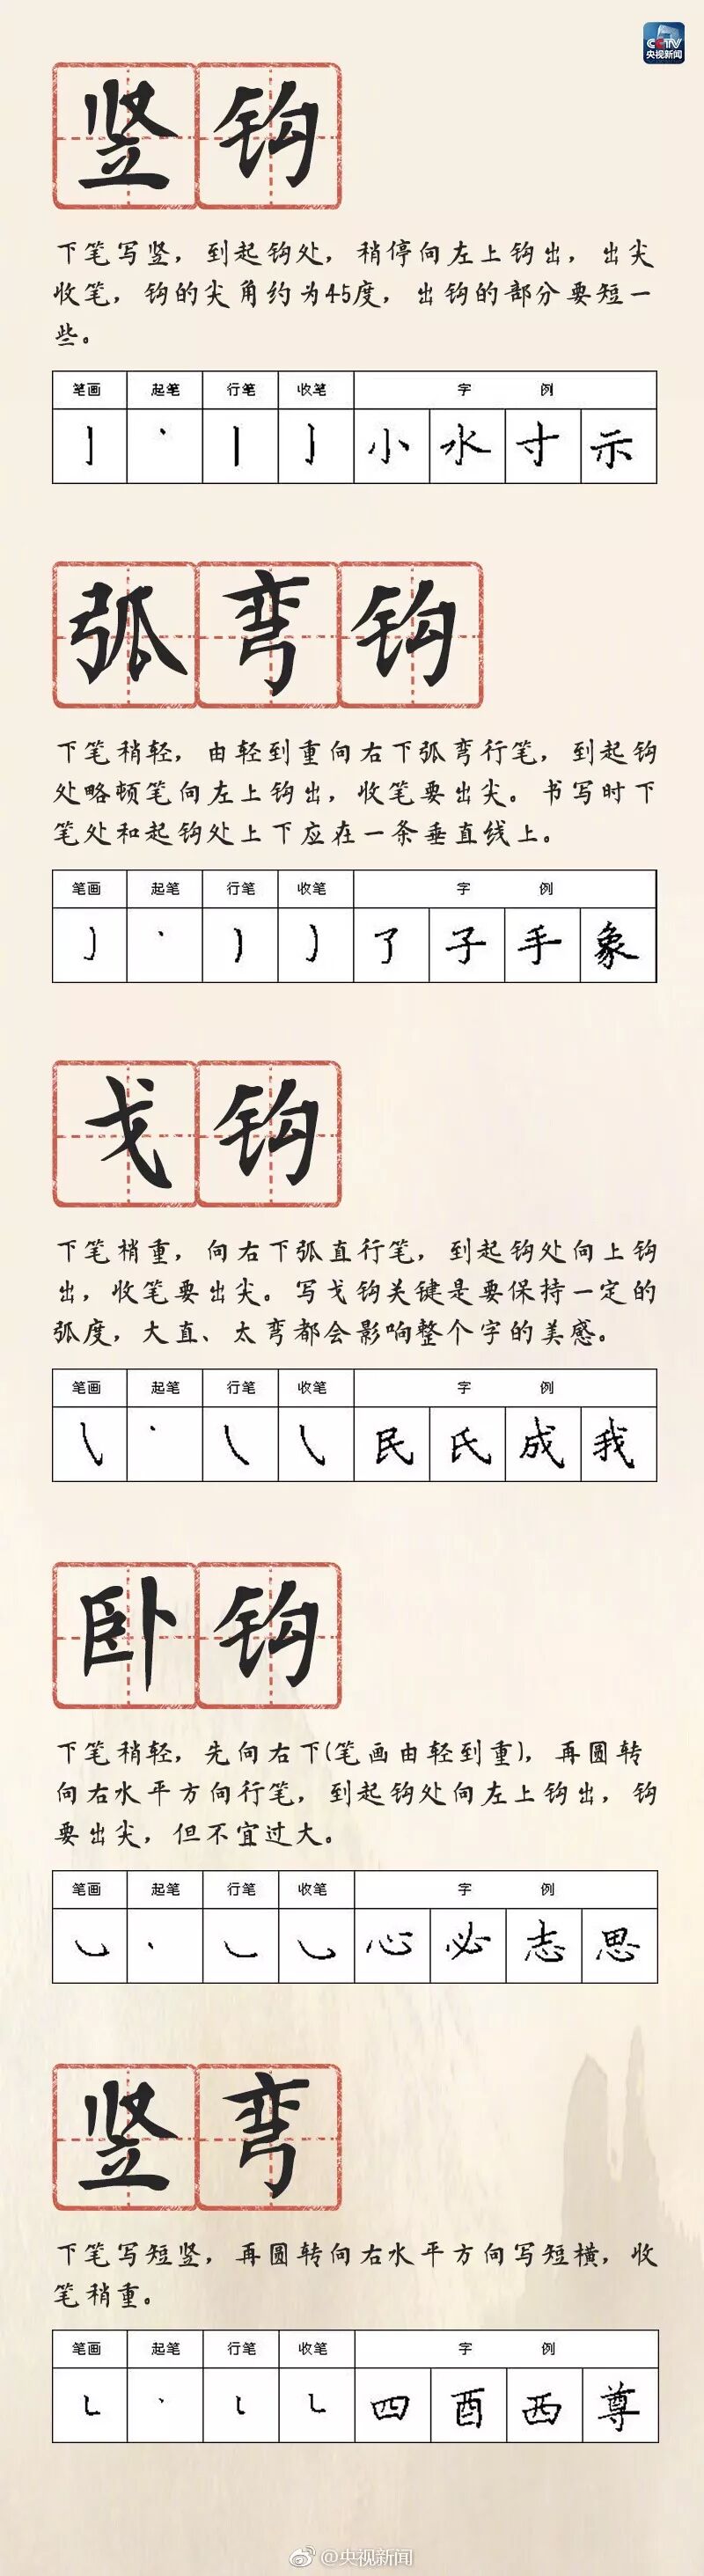 CCTV
央视新闻
竖钩
下笔写竖，到起钩处，稍停向左上钩出，出尖
收笔，钩的尖角约为45度，出钩的部分要短一
些。
笔画 起笔 行笔 收笔 字 例
亅 丶 丨 亅 小 水 寸 示
弧弯钩
下笔稍轻，由轻到重向右下弧弯行笔，到起钩
处略顿笔向左上钩出，收笔要出尖。书写时下
笔处和起钩处上下应在一条垂直线上。
笔画 起笔 行笔 收笔 字 例
了 子 手 象
戈钩
下笔稍重，向右下弧直行笔，到起钩处向上钩
出，收笔要出尖。写戈钩关键是要保持一定的
弧度，大直、太弯都会影响整个字的美感。
笔画 起笔 行笔 收笔 字 例
民 氏 成 我
卧钩
下笔稍轻，先向右下(笔画由轻到重)，再圆转
向右水平方向行笔，到起钩处向左上钩出，钩
要出尖，但不宜过大。
笔画 起笔 行笔 收笔 字 例
心 必 志 思
竖弯
下笔写短竖，再圆转向右水平方向写短横，收
笔稍重。
笔画 起笔 行笔 收笔 字 例
四 酉 西 尊
@央视新闻